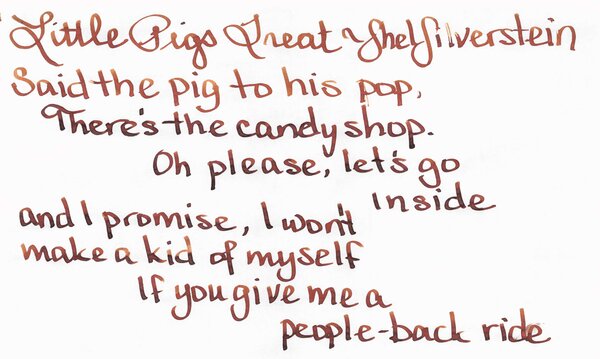 Little Pigs Treat ~ Shel Silverstein
Said the pig to his pop,
There's the candy shop.
Oh please, let's go
Inside
and I promise, I won't
make a kid of myself
If you give me a
people-back ride